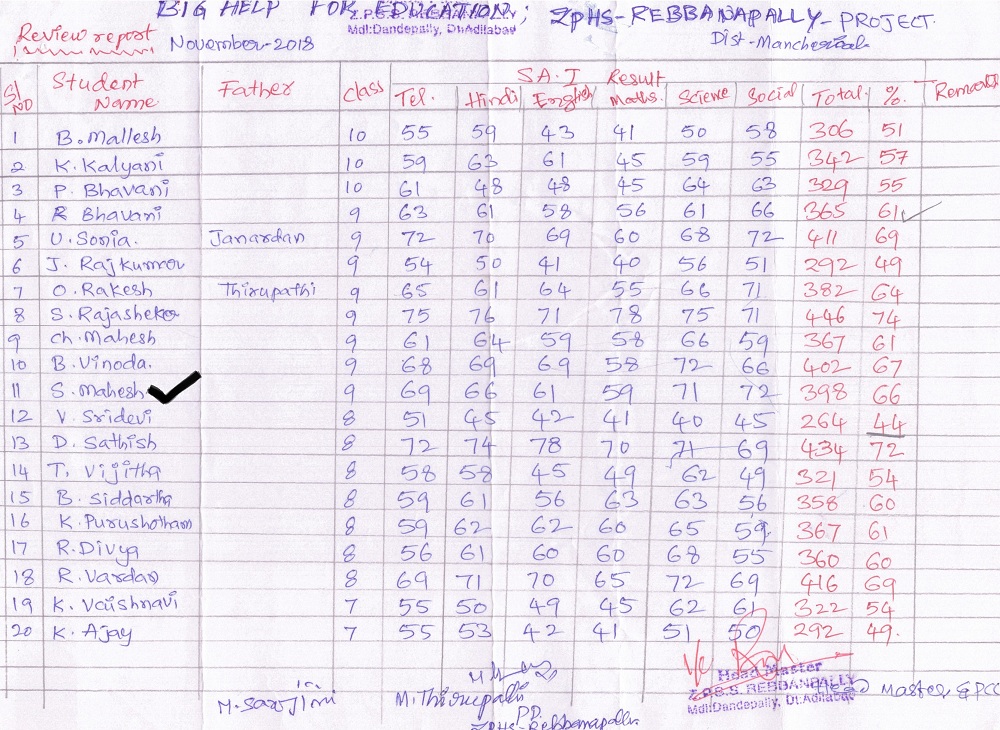 BIG HELP FOR EDUCATION; ZPHS-REBBANAPALLY-PROJECT.
Z.P.S.S. REBBANPALLY
Mdl:Dandepally, Dt:Adilabad
Dist-Mancherial
Review report November-2018
SA.I Result
Sl No Student Name Father class Tel. Hindi English Maths. Science Social Total. %. Remarks
1 B.Mallesh 10 55 59 43 41 50 58 306 51
2 K.Kalyani 10 59 63 61 45 59 55 342 57
3 P. Bhavani 10 61 48 48 45 64 63 329 55
4 R Bhavani 9 63 61 58 56 61 66 365 61 ✓
5 U.Sonia. Janardan 9 72 70 69 60 68 72 411 69
6 J. Rajkumar 9 54 50 41 40 56 51 292 49
7 O.Rakesh Thirupathi 9 65 61 64 55 66 71 382 64
8 S.Rajasheker 9 75 76 71 78 75 71 446 74
9 Ch.Mahesh 9 61 64 59 58 66 59 367 61
10 B.Vinoda. 9 68 69 69 58 72 66 402 67
11 S.Mahesh ✔ 9 69 66 61 59 71 72 398 66
12 V. Sridevi 8 51 45 42 41 40 45 264 44
13 D. Sathish 8 72 74 78 70 71 69 434 72
14 T. Vijitha 8 58 58 45 49 62 49 321 54
15 B. Siddartha 8 59 61 56 63 63 56 358 60
16 K.Purushotham 8 59 62 62 60 65 59 367 61
17 R.Divya 8 56 61 60 60 68 55 360 60
18 R.Vardan 8 69 71 70 65 72 69 416 69
19 K. Vaishnavi 7 55 50 49 45 62 61 322 54
20 K. Ajay 7 55 53 42 41 51 50 292 49.
M.Sarojini
M.Thirupathi
P.D.
ZPHS-Rebbanapally
Head Master
Z.P.S.S. REBBANPALLY
Mdl:Dandepally, Dt:Adilabad
Head Master & PCC